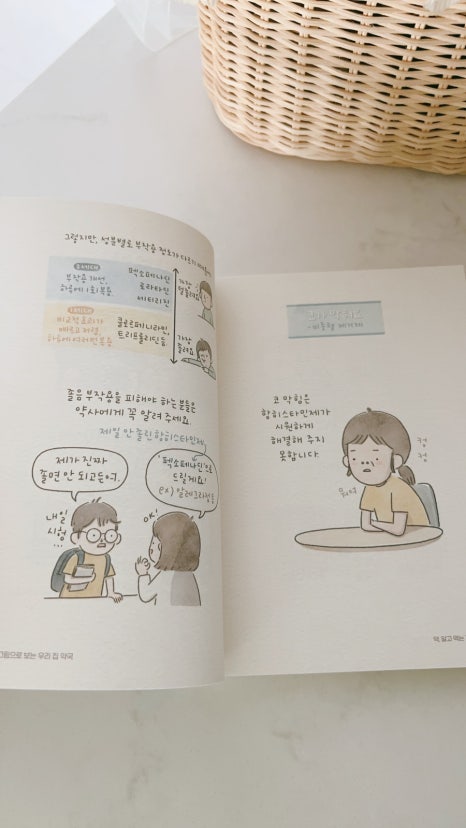 그렇지만, 성분별로 부작용 정도가 다르기 때문에
2세대
부작용 개선,
하루에 1회 복용.
펙소페나딘
로라타딘
세티리진
가장
덜 졸려요
1세대
비교적 효과가
빠르고 저렴,
하루에 여러번 복용
클로르페니라민,
트리프롤리딘 등
가장
졸려요
졸음 부작용을 피해야 하는 분들은
약사에게 꼭 알려 주세요.
제일 안 졸린 항히스타민제,
'펙소페나딘'으로
드릴게요!
ex) 알레그라정 등
제가 진짜
졸면 안 되거든여.
내일
시험
...
OK!
그림으로 보는 우리 집 약국
코막힘 약
- 비충혈 제거제
코 막힘은
항히스타민제가
시원하게
해결해 주지
못합니다.
컹
컹
약, 알고 먹는